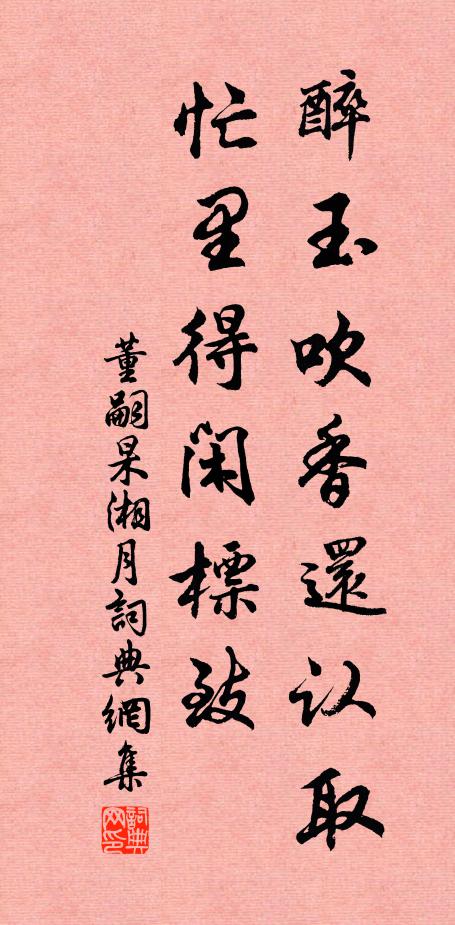 醉玉吹香還认取
忙里得閑標致
董嗣杲湘月詞典網集
詞典网印